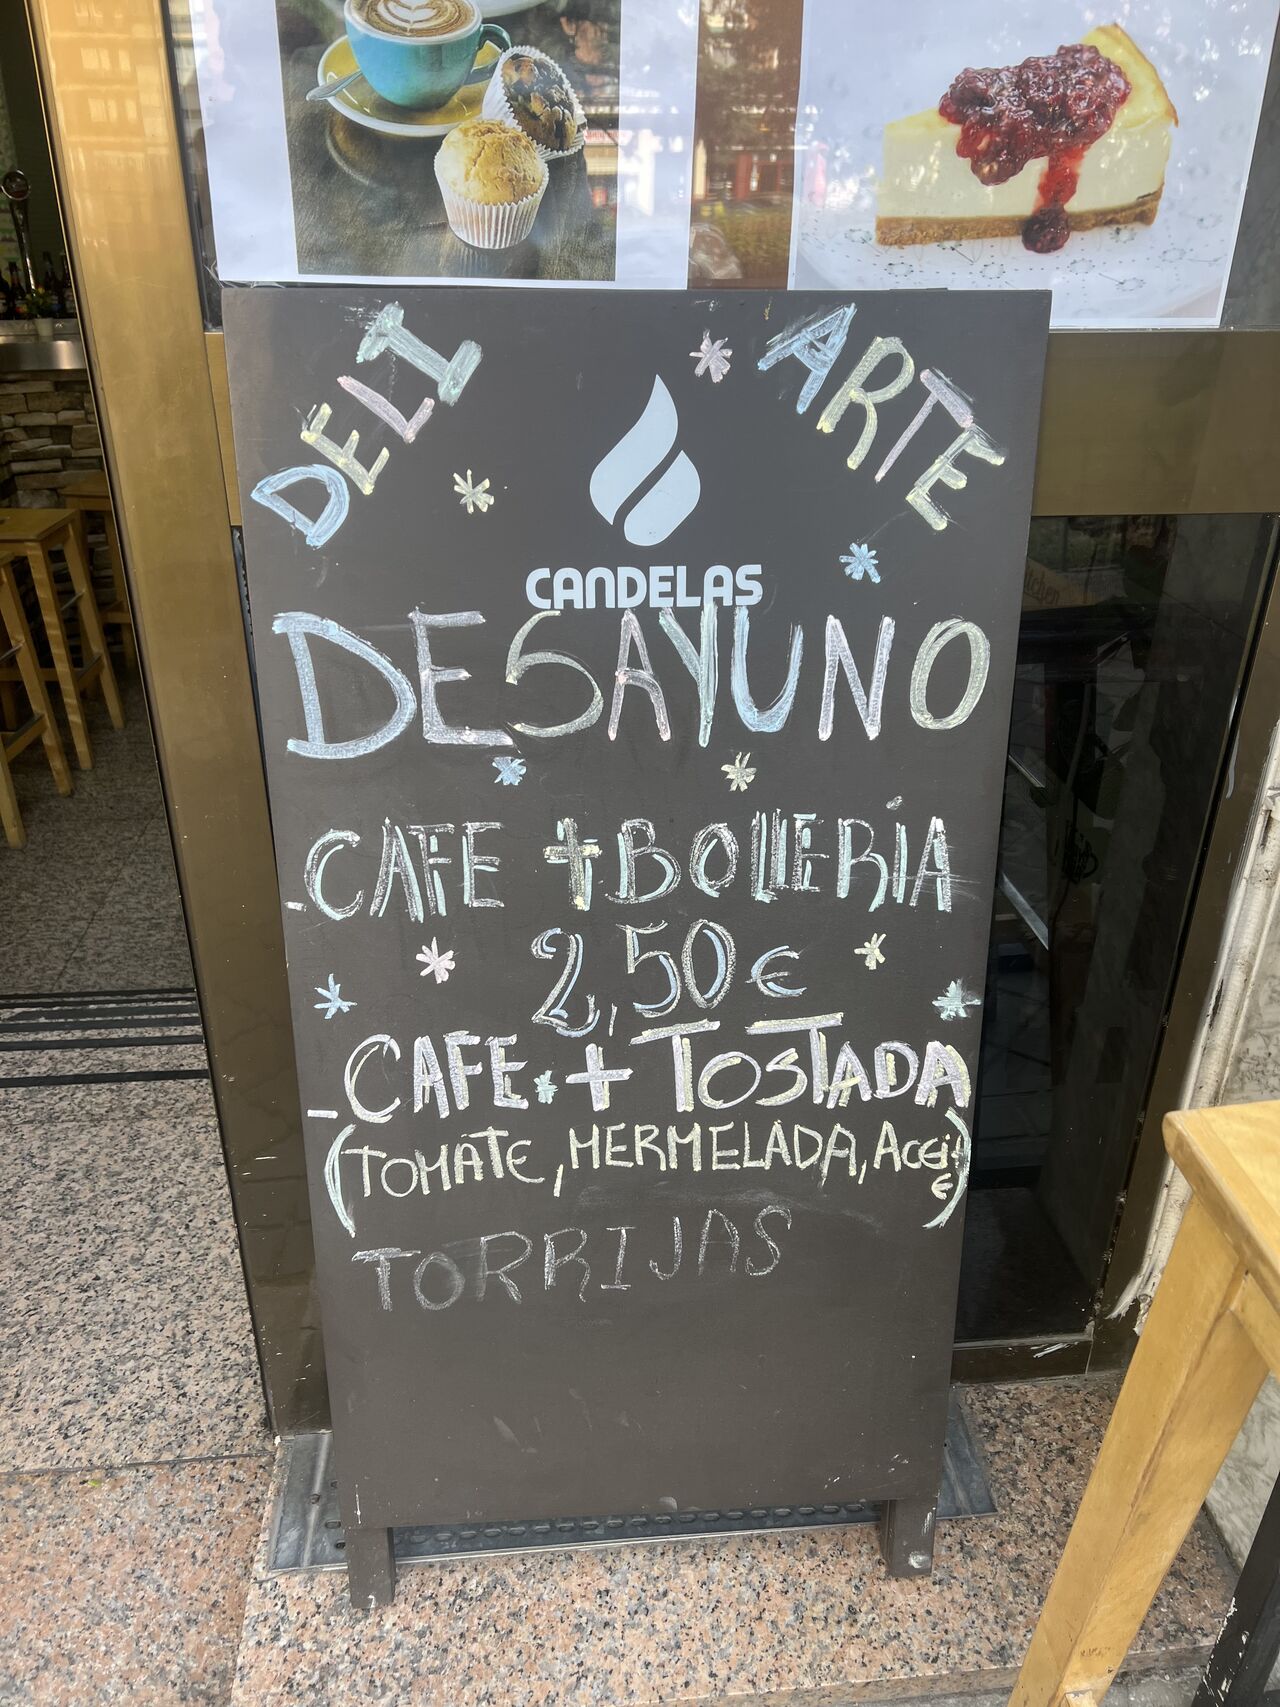 DELI ARTE
CANDELAS
DESAYUNO
-CAFE + BOLLERIA
2,50€
-CAFE + TOSTADA
(TOMATE, MERMELADA, Aceite)
TORRIJAS